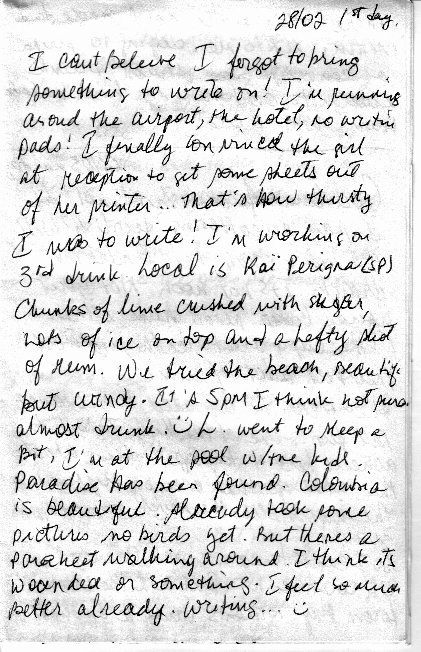 28/02 1st day.
I cant believe I forgot to bring
something to write on! I'm running
around the airport, the hotel, no writin
pads! I finally convinced the girl
at reception to get some sheets out
of her printer... That's how thirsty
I was to write! I'm working on
3rd drink. Local is Kai Perigna (SP)
Chunks of lime crushed with sugar,
lots of ice on top and a hefty shot
of rum. We tried the beach, beautif
but windy. It's 5pm I think not sure
almost drunk. L. went to sleep a
bit, I'm at the pool w/the kids.
Paradise has been found. Colombia
is beautiful. Already took some
pictures no birds yet. But theres a
parakeet walking around. I think its
wounded or something. I feel so much
better already. Writing...